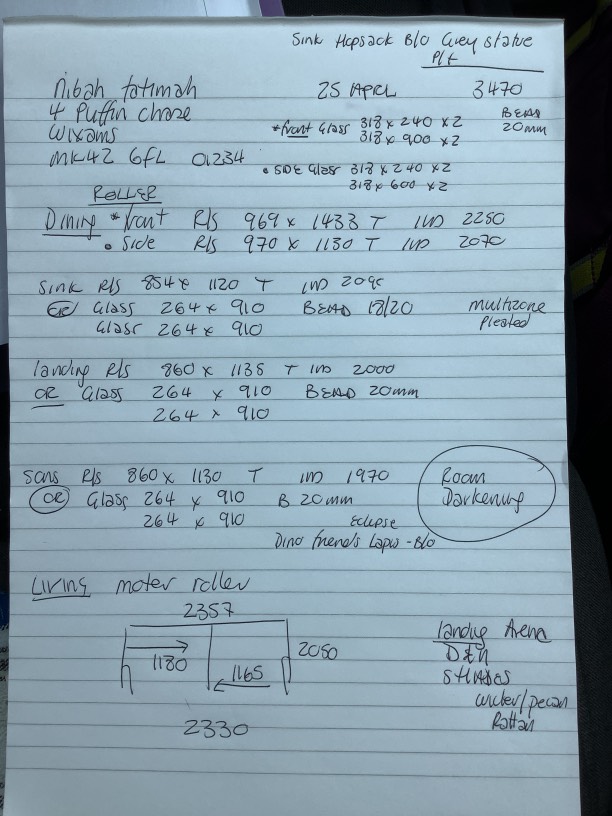 Sink Hopsack B/O Grey statue
P/F
Nibah fatimah 25 APRIL 3470
4 Puffin chase
*front Glass 318 x 240 x 2 BEAD
Wixams 318 x 900 x 2 20mm
MK42 6FL 01234 • SIDE Glass 318 x 240 x 2
318 x 600 x 2
ROLLER
Dining *front R/S 969 x 1433 T 2250
• Side R/S 970 x 1130 T 2070
Sink R/S 854 x 1120 T
OR Glass 264 x 910 BEAD 18/20 multizone
Glass 264 x 910 Pleated
landing R/S 860 x 1135 T 2000
OR Glass 264 x 910 BEAD 20mm
264 x 910
sons R/S 860 x 1130 T 1970 Room
OR Glass 264 x 910 B 20mm Darkening
264 x 910 Eclipse
Dino friends Lapis - B/O
LIVING moter roller
2357
1180 1165 2050
2330
landing Arena
D&N
SHADES
/pecan
Rattan